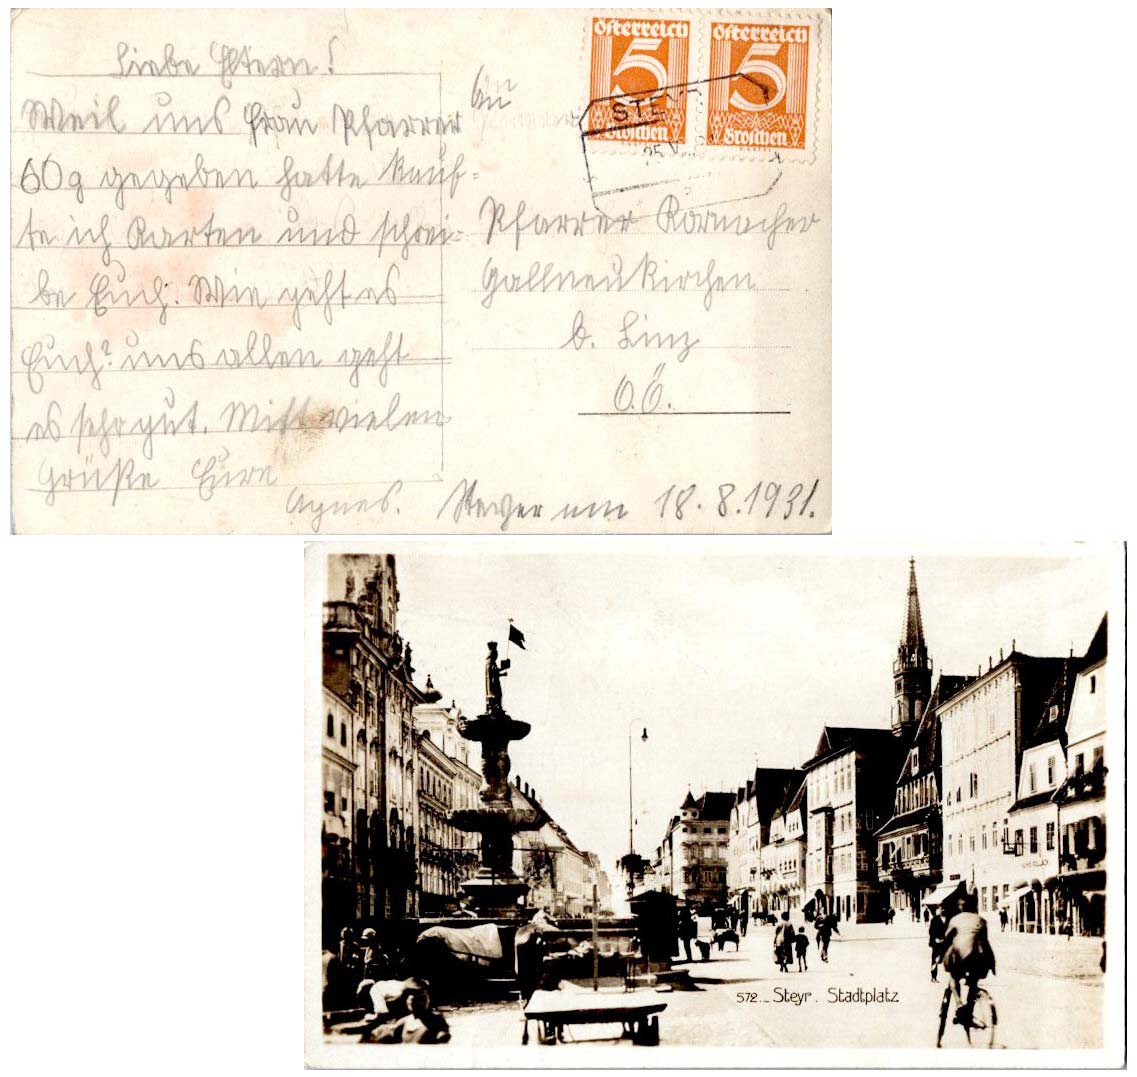 Liebe Eltern!
Weil uns Frau Pfarrer
60g gegeben hatte kauf=
te ich Karten und schrei=
be Euch. Wie geht es
Euch? uns allen geht
es sehr gut. Mitt vielen
Grüße Eure
Agnes. Steyer am 18.8.1931.
Österreich
5
Groschen
Österreich
5
Groschen
STEY
25
An
Pfarrer
Gallneukirchen
b. Linz
O.Ö.
572._ Steyr. Stadtplatz